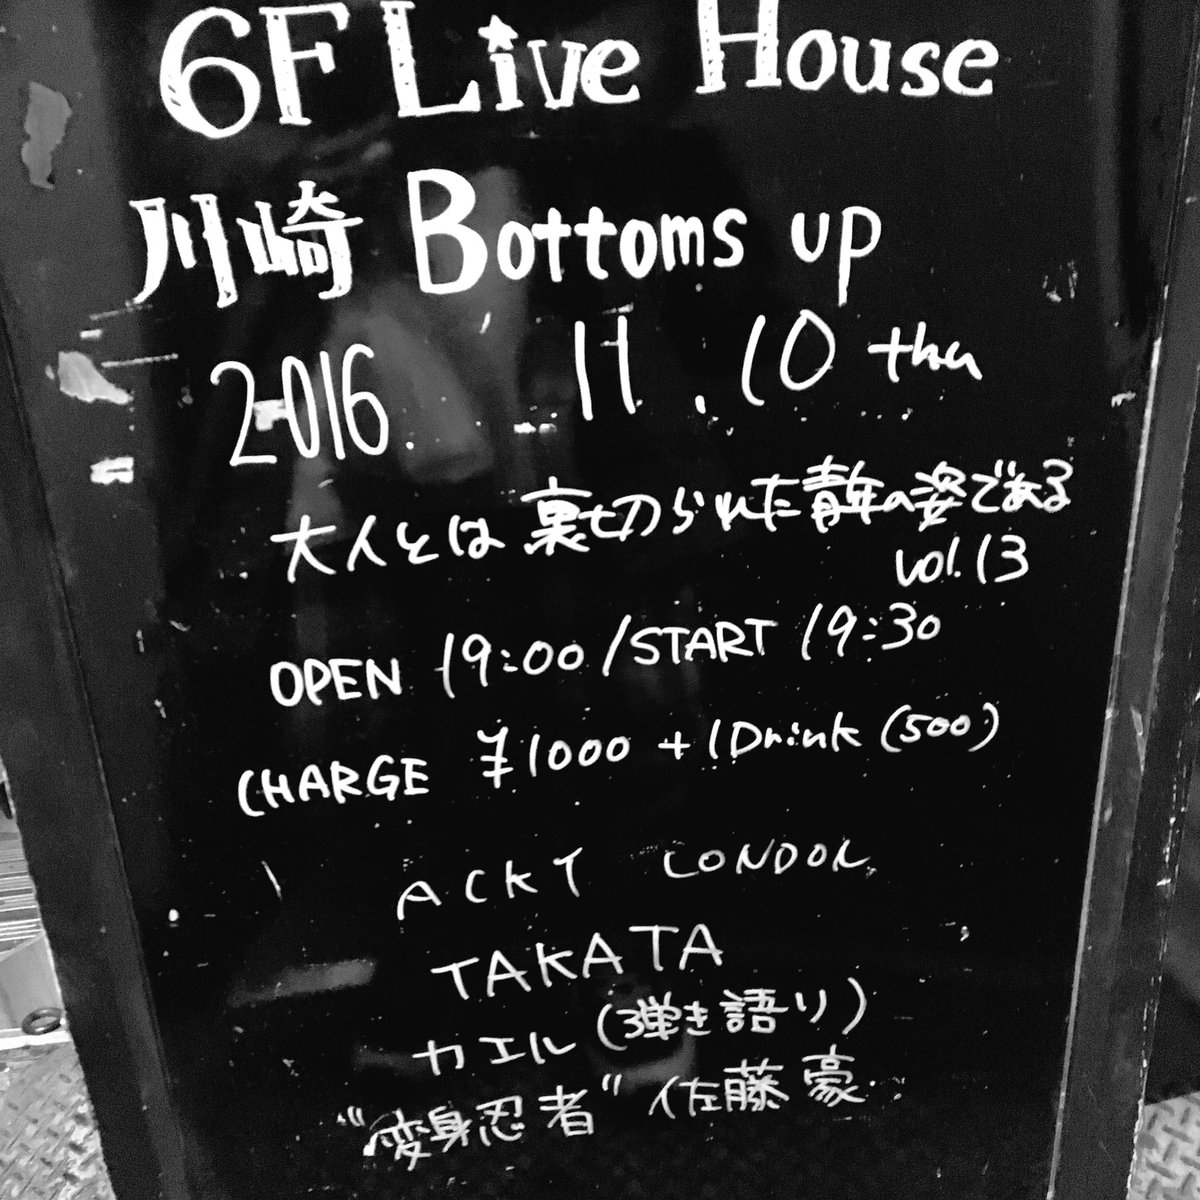 6F Live House
川崎 Bottoms up
2016. 11.10 thu
大人とは裏切られた青年の姿である
vol.13
OPEN 19:00/START 19:30
CHARGE ¥1000 + 1Drink (500)
ACKY LONDON
TAKATA
カエル(弾き語り)
"変身忍者"佐藤豪